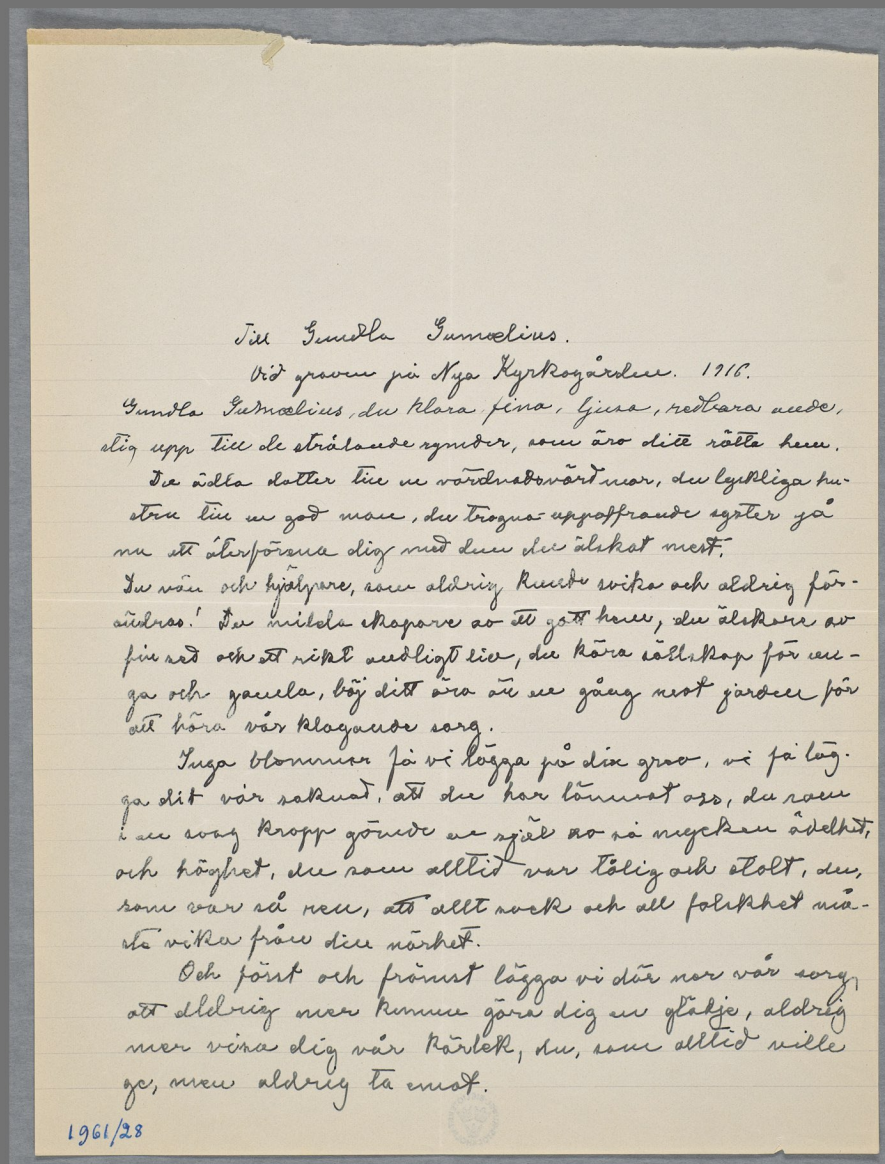 Till Gundla Gumælius.
Vid graven på Nya Kyrkogården. 1916.
Gundla Gumælius, du klara, fina, ljusa, redbara ande,
stig upp till de strålande rymder, som äro ditt rätta hem.
Du ädla dotter till en vördnadsvärd mor, du lyckliga hu-
stru till en god man, du trogna uppoffrande syster gå
nu att återförena dig med dem du älskat mest.
Du vän och hjälpare, som aldrig kunde svika och aldrig för-
ändras! Du milda skapare av ett gott hem, du älskare av
fin sed och ett rikt andligt liv, du kära sällskap för un-
ga och gamla, böj ditt öra än en gång mot jorden för
att höra vår klagande sorg.
Inga blommor få vi lägga på din grav, vi få läg-
ga dit vår saknad, att du har lämnat oss, du som
i en svag kropp gömde en själ av så mycken ädelhet,
och höghet, du som alltid var tålig och stolt, du,
som var så ren, att allt sveck och all falskhet må-
ste vika från din närhet.
Och först och främst lägga vi där ner vår sorg,
att aldrig mer kunna göra dig en glädje, aldrig
mer visa dig vår kärlek, du, som alltid ville
ge, men aldrig ta emot.
1961/28